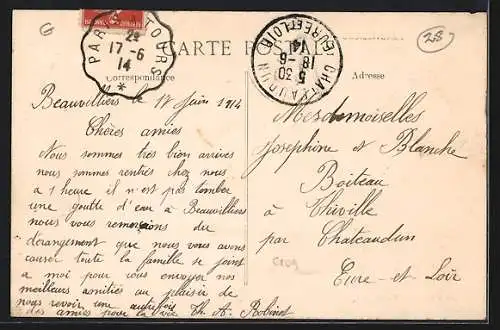 G
PARIS A TOURS
2E
17-6
14
CARTE POSTALE
CHATEAUDUN
5 30
18-6
14
EURE ET LOIR
Correspondance
Adresse
Beauvilliers le 17 Juin 1914
Chères amies
Nous sommes très bien arrivés
nous sommes rentrés chez nous
a 1 heure il n'est pas tomber
une goutte d'eau à Beauvilliers
nous vous remercions du
dérangement que nous vous avons
causer toute la famille se joint
a moi pour vous envoyer nos
meilleurs amitiés au plaisir de
nous revoir une autre fois
des amies pour la vie Th. A. Robinet
Mesdemoiselles
Josephine et Blanche
Boiteau
à Thiville
par Chateaudun
Eure-et-Loir